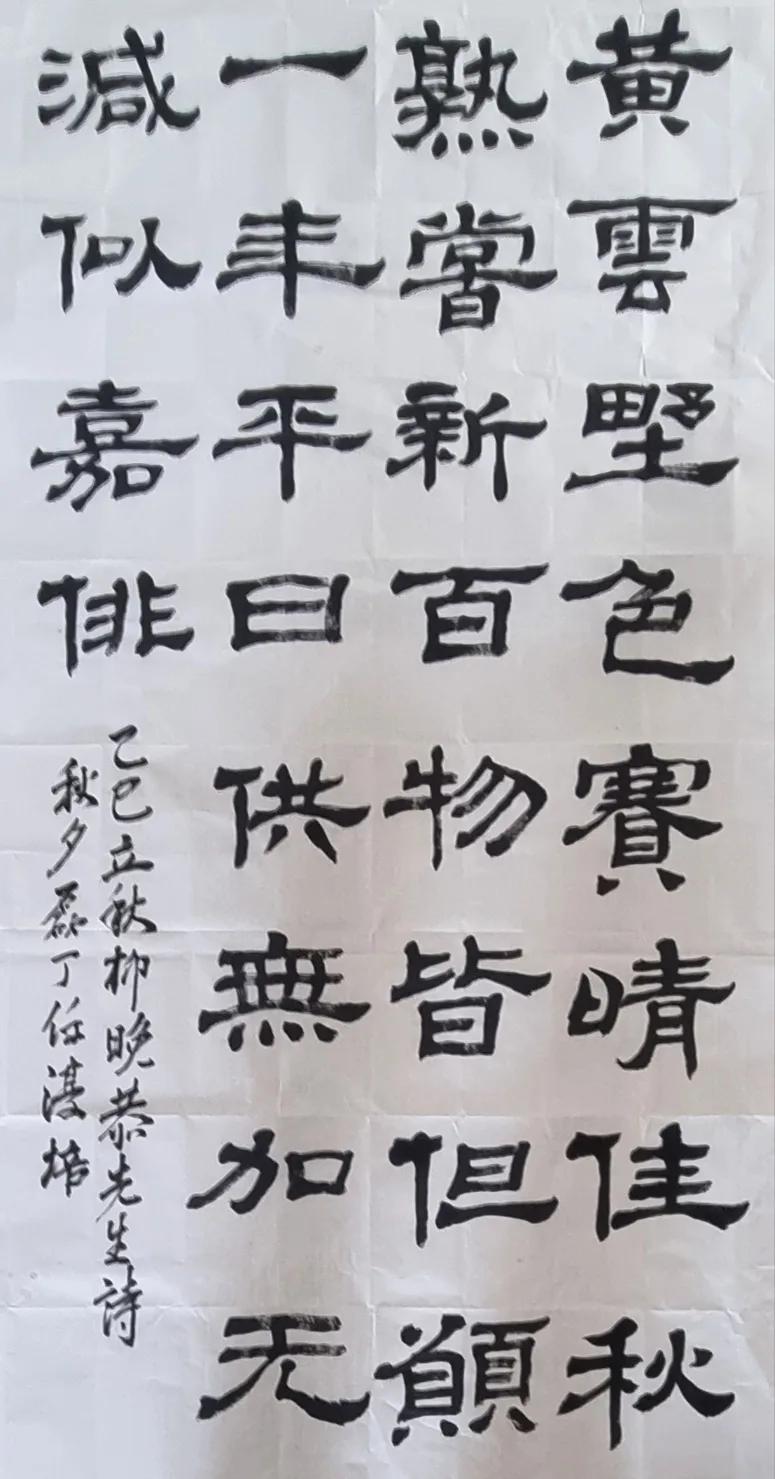 黄雲野色賽晴佳秋
熟嘗新百物皆但願
一年平日供無加无
減似嘉俳
乙巳立秋柳晚恭先生詩
秋夕磊丁任培